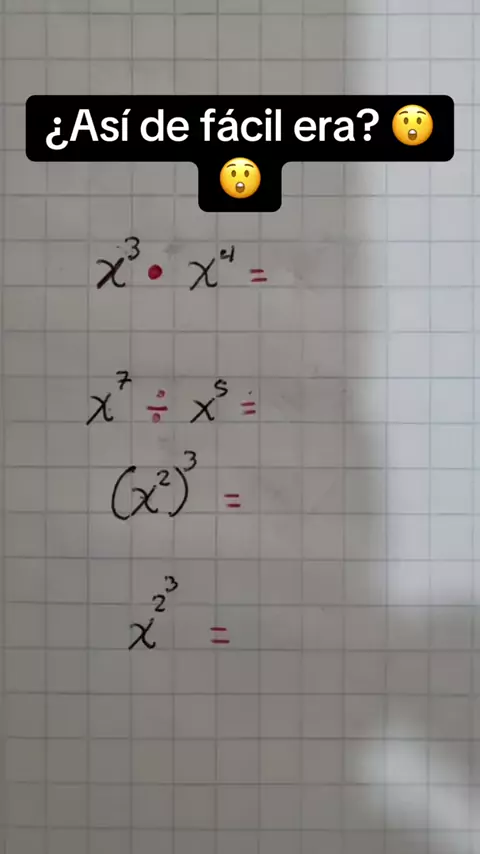 ¿Así de fácil era? 😲
😲
x³ • x⁴ =
x⁷ ÷ x⁵ =
(x²)³ =
x^2^3 =